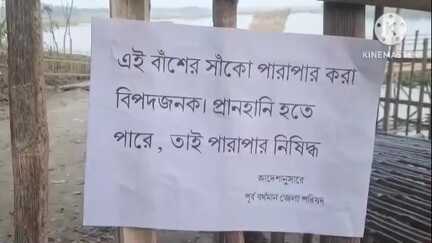 এই বাঁশের সাঁকো পারাপার করা
বিপদজনক। প্রানহানি হতে
পারে , তাই পারাপার নিষিদ্ধ
আদেশানুসারে
পূর্ব বর্ধমান জেলা পরিষদ
KINEMASTER